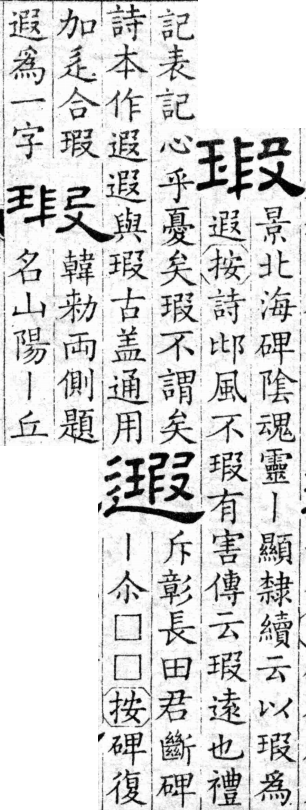 瑕
景北海碑陰魂靈丨顯隸續云以瑕爲
遐按詩邶風不瑕有害傳云瑕遠也禮
記表記心乎憂矣瑕不謂矣
詩本作遐遐與瑕古盖通用
斥彰長田君斷碑
丨尒□□按碑復
加辵合瑕
遐爲一字
瑕
韓勑両側題
名山陽丨丘